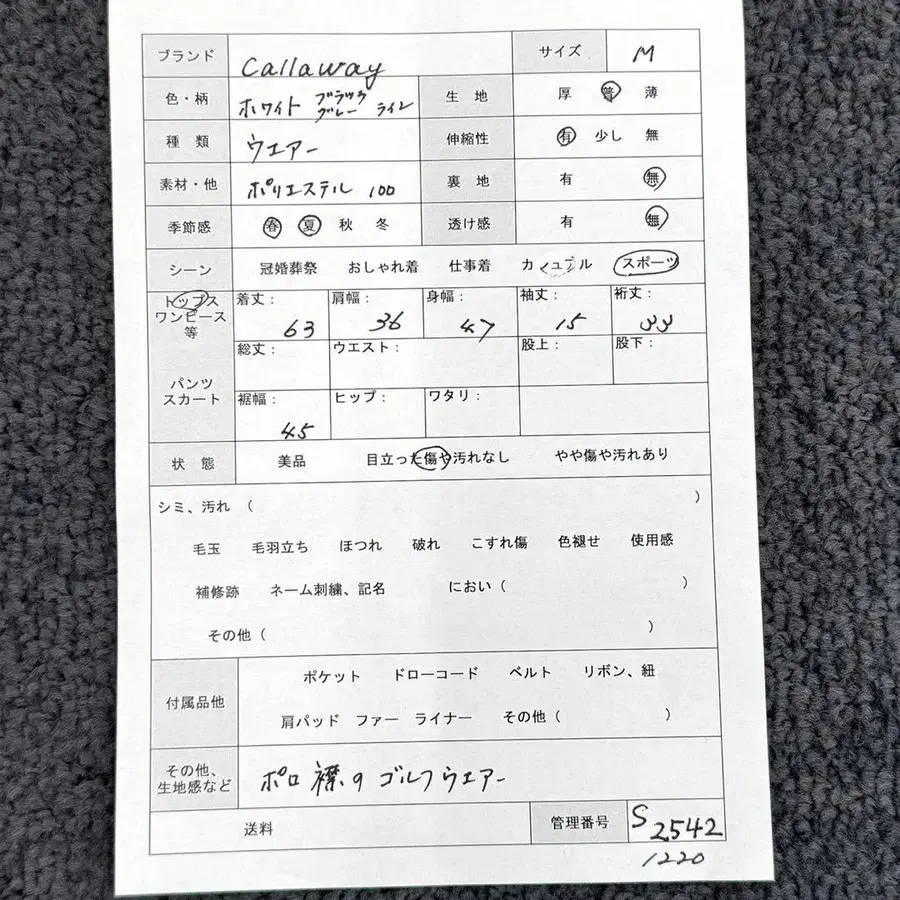 ブランド callaway サイズ M
色・柄 ホワイト ブラック グレー ライン 生 地 厚 普 薄
種 類 ウエアー 伸縮性 有 少し 無
素材・他 ポリエステル 100 裏 地 有 無
季節感 春 夏 秋 冬 透け感 有 無
シーン 冠婚葬祭 おしゃれ着 仕事着 カジュアル スポーツ
トップス ワンピース 等 着丈: 63 肩幅: 36 身幅: 47 袖丈: 15 裄丈: 33
パンツ スカート 総丈: ウエスト: 股上: 股下:
裾幅: 45 ヒップ: ワタリ:
状 態 美品 目立った傷や汚れなし やや傷や汚れあり
シミ、汚れ ( )
毛玉 毛羽立ち ほつれ 破れ こすれ傷 色褪せ 使用感
補修跡 ネーム刺繍、記名 におい ( )
その他 ( )
付属品他 ポケット ドローコード ベルト リボン、紐
肩パッド ファー ライナー その他 ( )
その他、生地感など ポロ襟のゴルフウエアー
送料 管理番号 S2542
1220